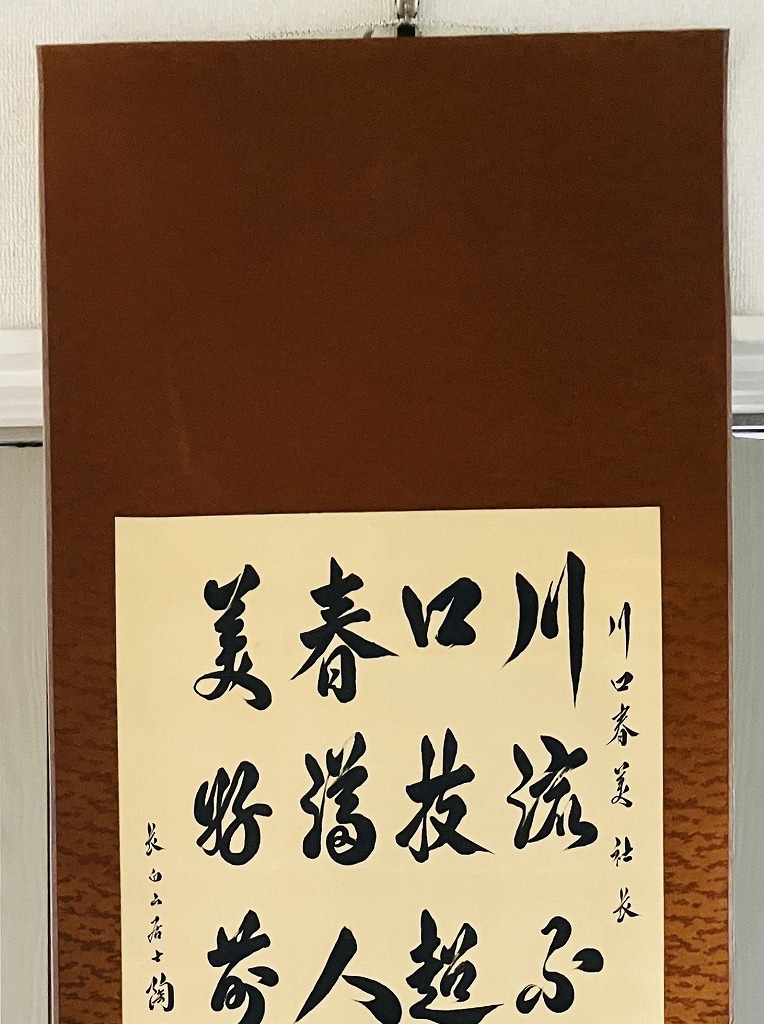 川口春美社長
川流不
口技超
春满人
美好前
長白山居士陶